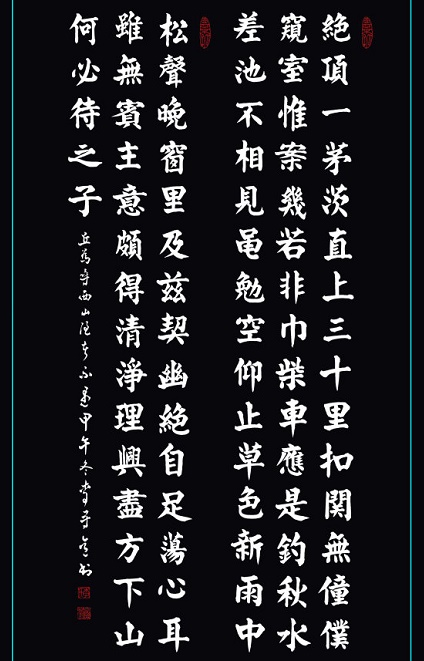 絶頂一茅茨直上三十里扣関無僮僕
窺室惟案幾若非巾柴車應是釣秋水
差池不相見黽勉空仰止草色新雨中
松聲晚窗里及茲契幽絶自足蕩心耳
雖無賓主意頗得清淨理興盡方下山
何必待之子
丘為尋西山隱者不遇甲午冬李守書